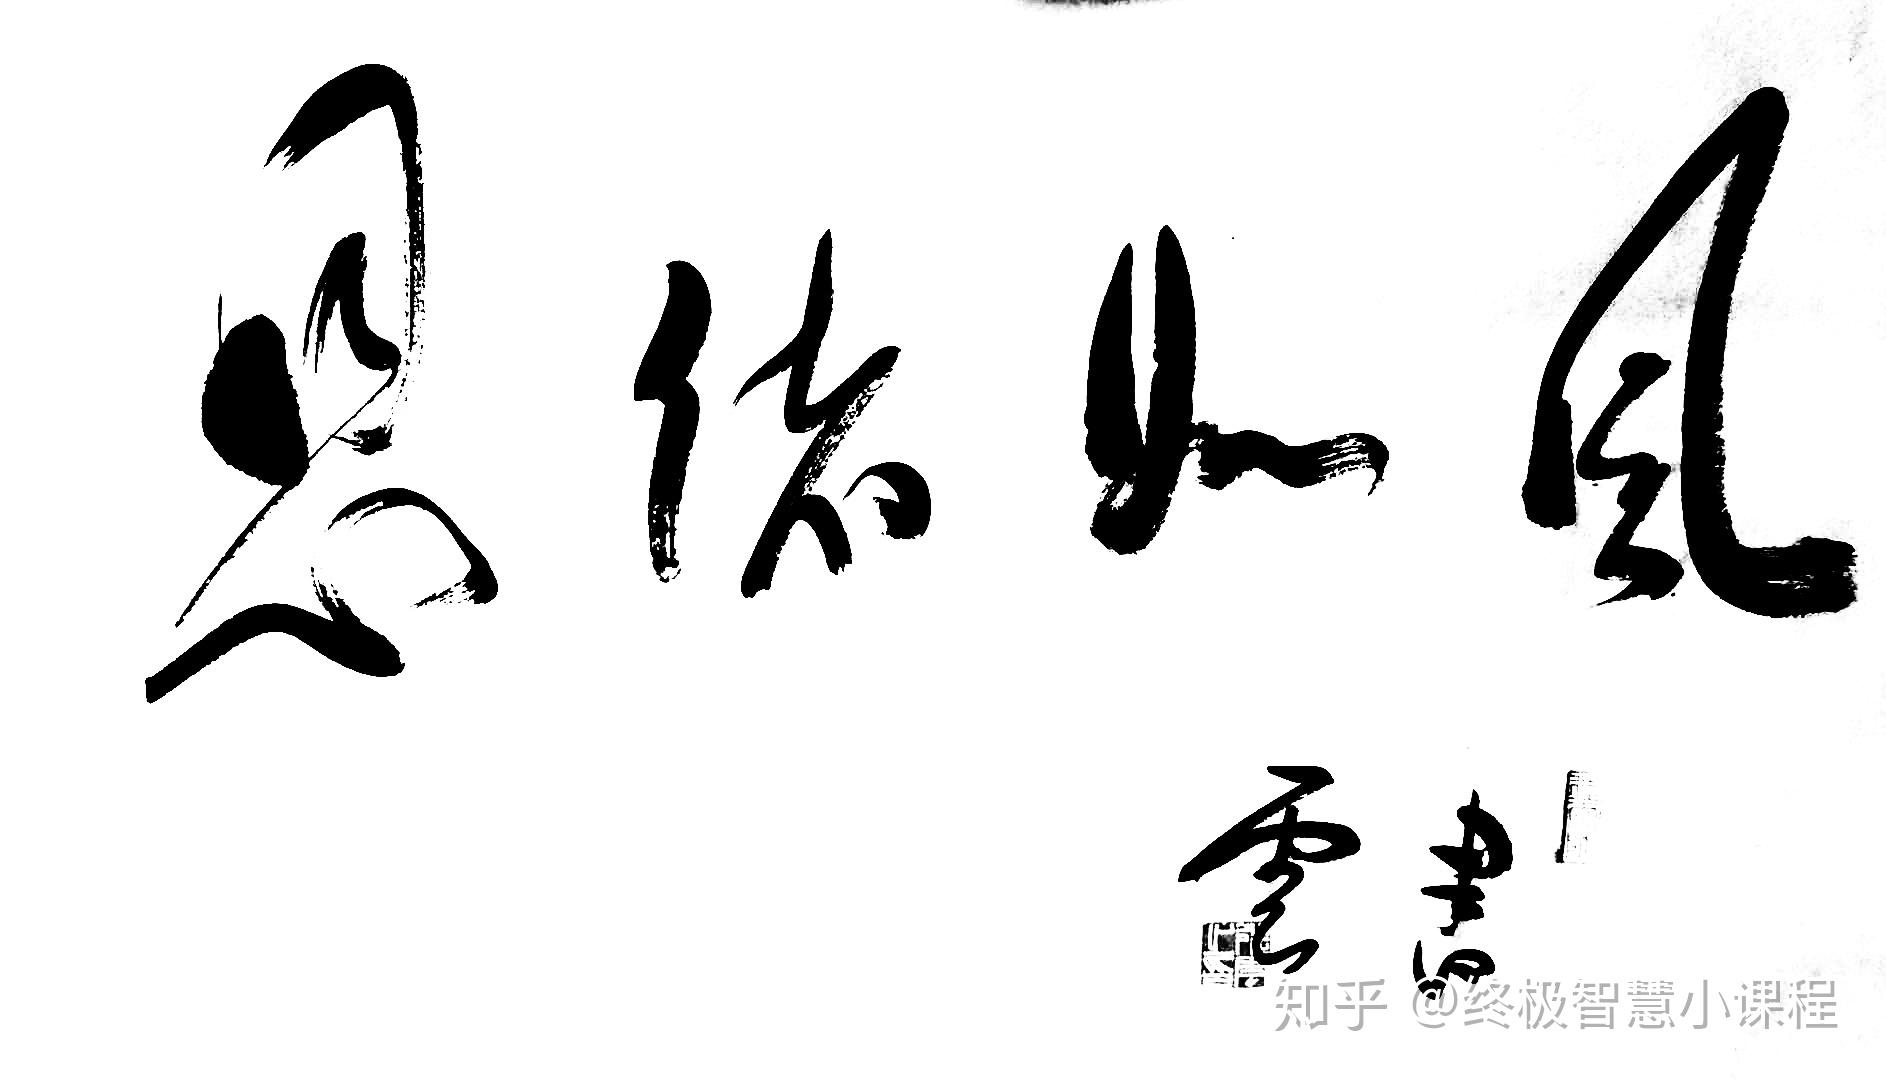 思緒如風
雲書
知乎 @终极智慧小课程